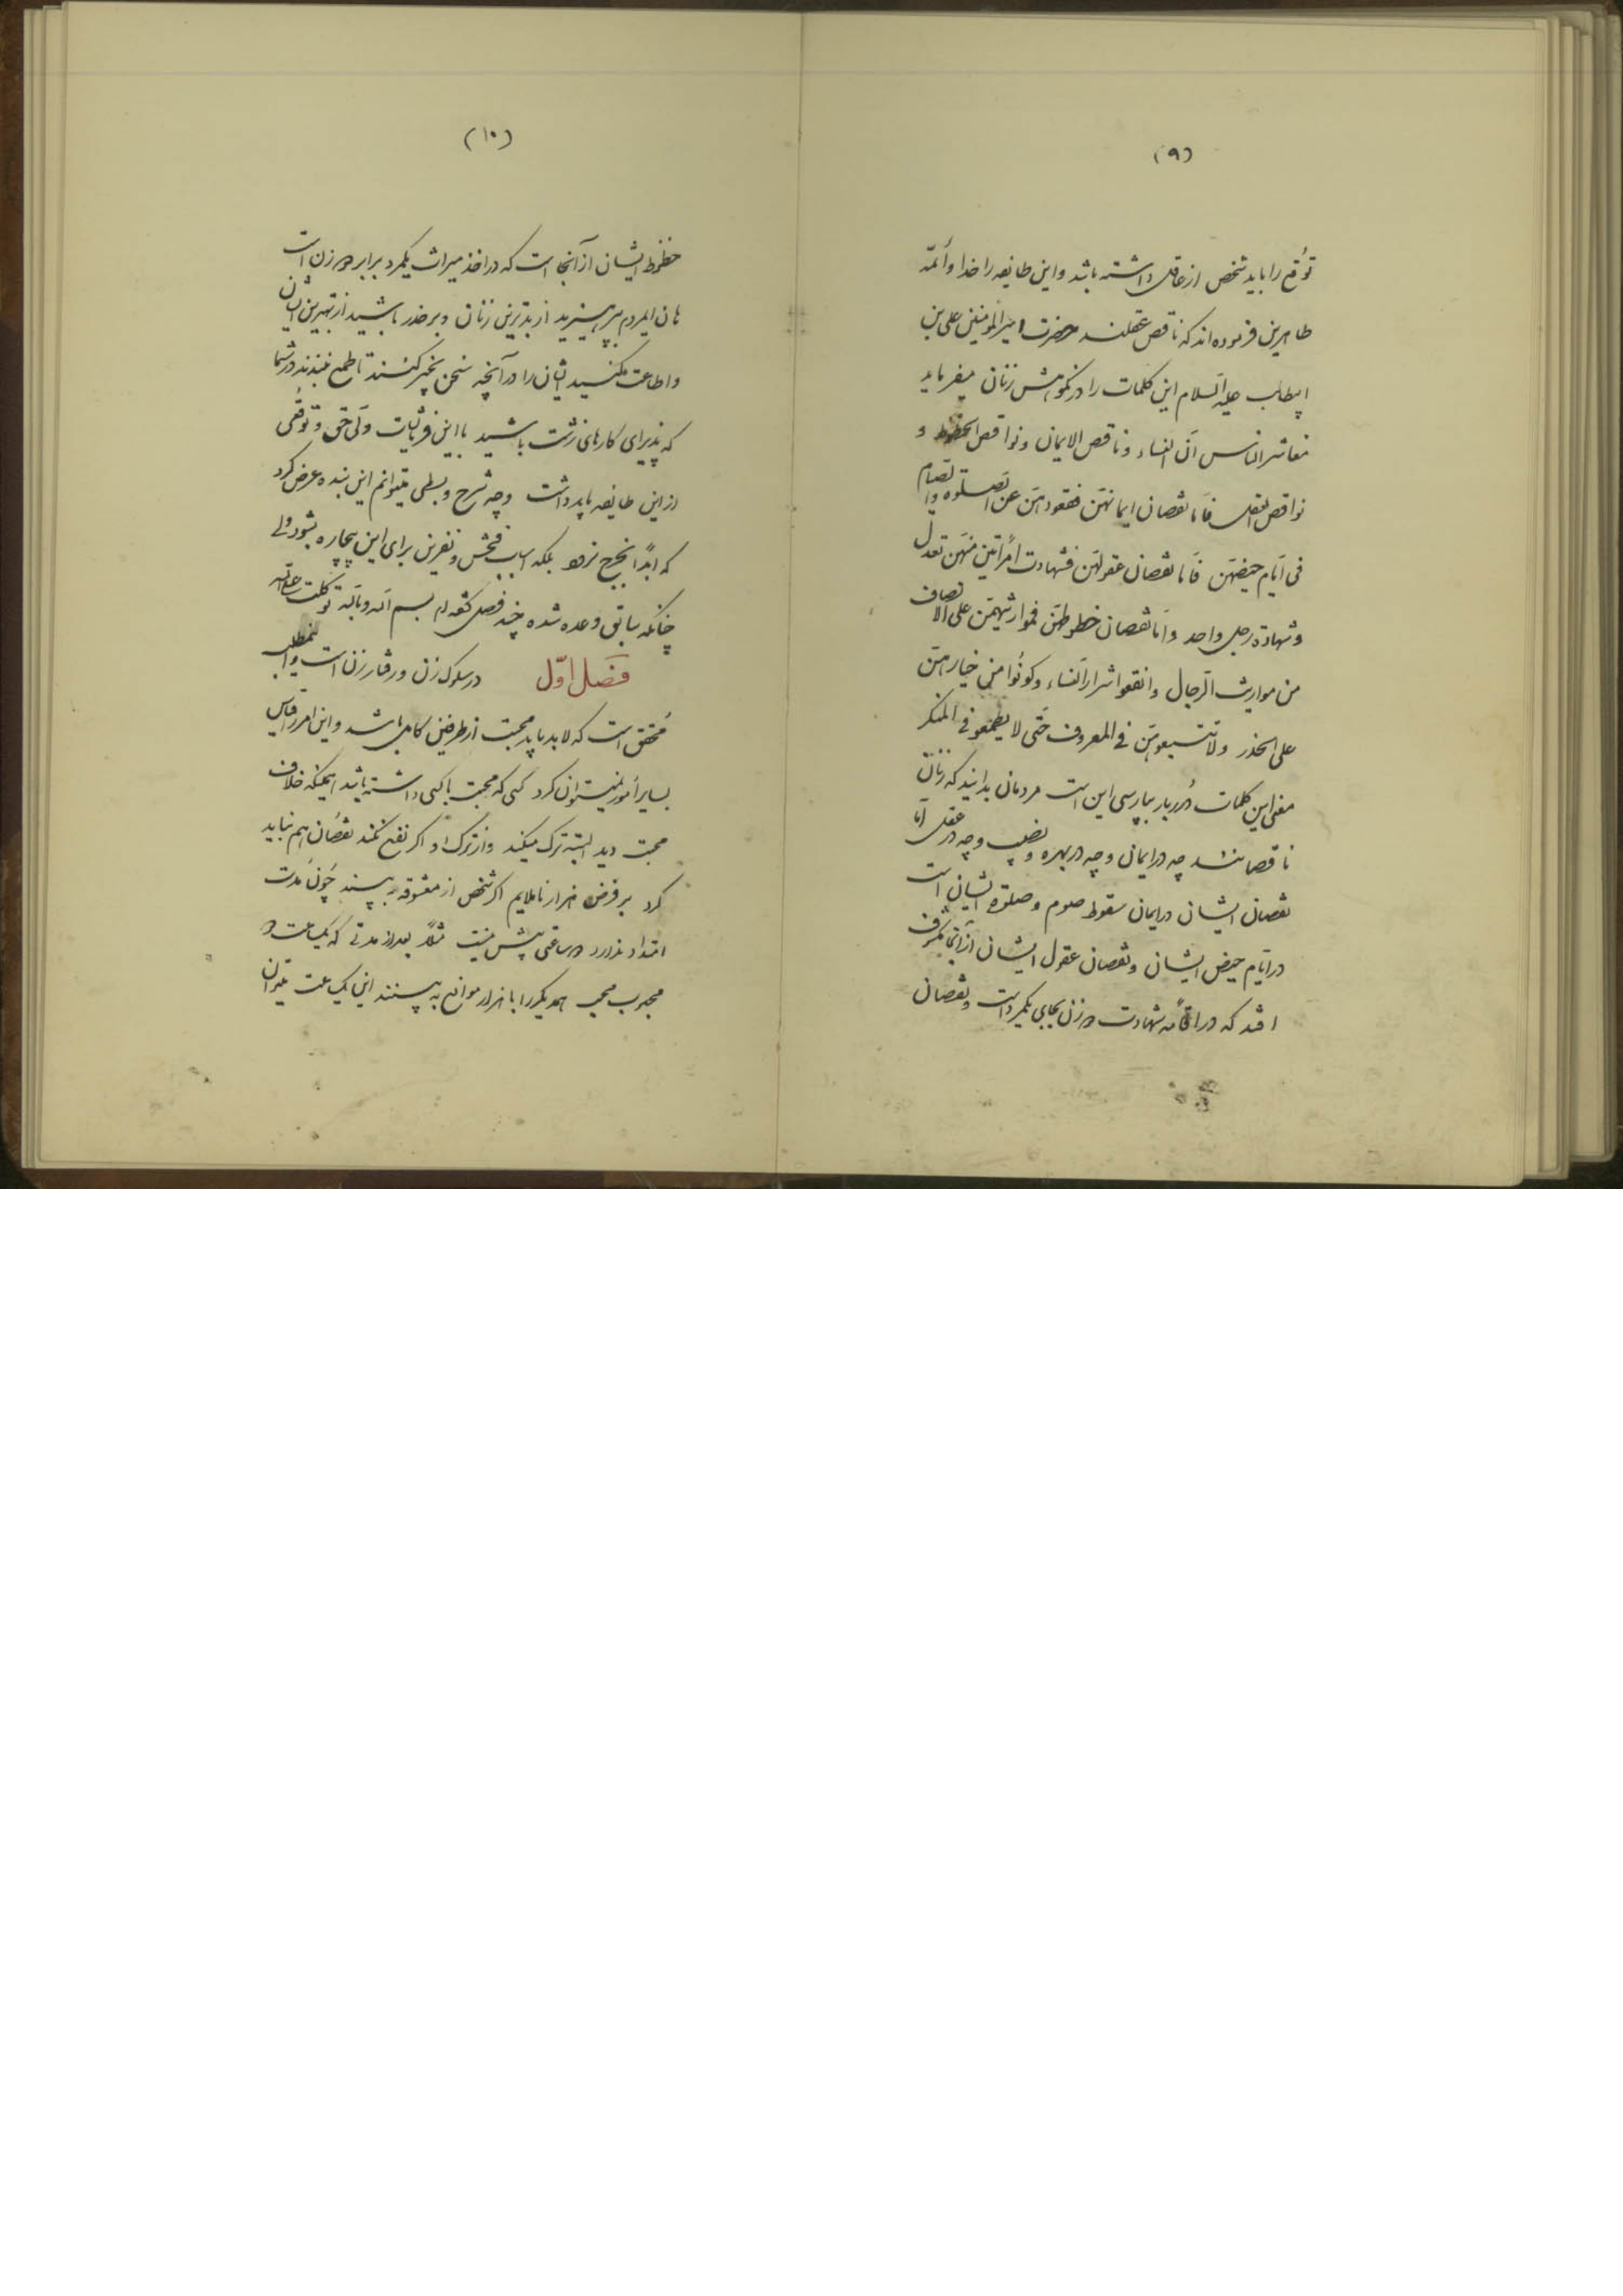 (۹)
توقع را باید شخص از عاقل داشته باشد و این طایفه را خدا و ائمّه
طاهرین فرموده اند که ناقص عقلند حضرت امیرالمومنین علی بن
ابیطالب علیه السلام این کلمات را در نکوهش زنان میفرماید
معاشر الناس ان النساء و ناقص الایمان و نواقص الحظوظ و
نواقص العقل فاما نقصان ایمانهن فقعودهن عن الصلوه و الصیام
فی ایام حیضهن فاما نقصان عقولهن فشهادت امرأتین منهن تعدل
و شهادة رجل واحد و اما نقصان حظوظهن فمواریثهن علی الانصاف
من مواریث الرجال و اتقوا شرار النساء و کونوا من خیارهن
علی الحذر و لا تتبعوهن فی المعروف حتی لا یطمعو فی المنکر
معنی این کلمات دُرربار بپارسی این است مردمان بدانید که زنان
ناقصانند چه در ایمان و چه در بهره و نصیب و چه در عقل امّا
نقصان ایشان در ایمان سقوط صوم و صلوة ایشان است
در ایام حیض ایشان و نقصان عقول ایشان از آنجا مکشوف
افتد که در اقامه شهادت دو زن بجای یکمرد است و نقصان
(۱۰)
حظوظ ایشان از آنجا است که در اخذ میراث یکمرد برابر دو زن است
هان ایمردم بپرهیزید از بدترین زنان و بر حذر باشید از بهترین ایشان
و اطاعت مکنید ایشان را در آنچه سخن بخیر کنند تا طمع نبندند در شما
که پذیرای کارهای زشت باشید با این فرمایشات ولی حق و توقعی
از این طایفه باید داشت و چه شرح و بسطی میتوانم این بنده عرض کرد
که ابداً بخرج نرود بلکه اسباب فحش و نفرین برای این بیچاره بشود ولی
چنانکه سابق وعده شده چند فصل گفته ام بسم الله و بالله توکلت علی الله
فصل اوّل در سلوک زن و رفتار زن است و المطلب
مُحقق است که لابد باید محبت از طرفین کامل باشد و این امر را قیاس
بسایر اُمور نمیتوان کرد کسی که محبت با کسی داشته باشد همینکه خلاف
محبت دید البته ترک میکند و از ترک او اگر نفع نکند نقصان هم نباید
کرد بر فرض هزار ناملایم اگر شخص از معشوقه به بیند چون مدت
امتداد ندارد دو ساعتی بیش نیست مثلاً بعد از مدتی که یکساعت دو
محبوب محب همدیگر را با هزار موانع به بینند این یکساعت میتوان